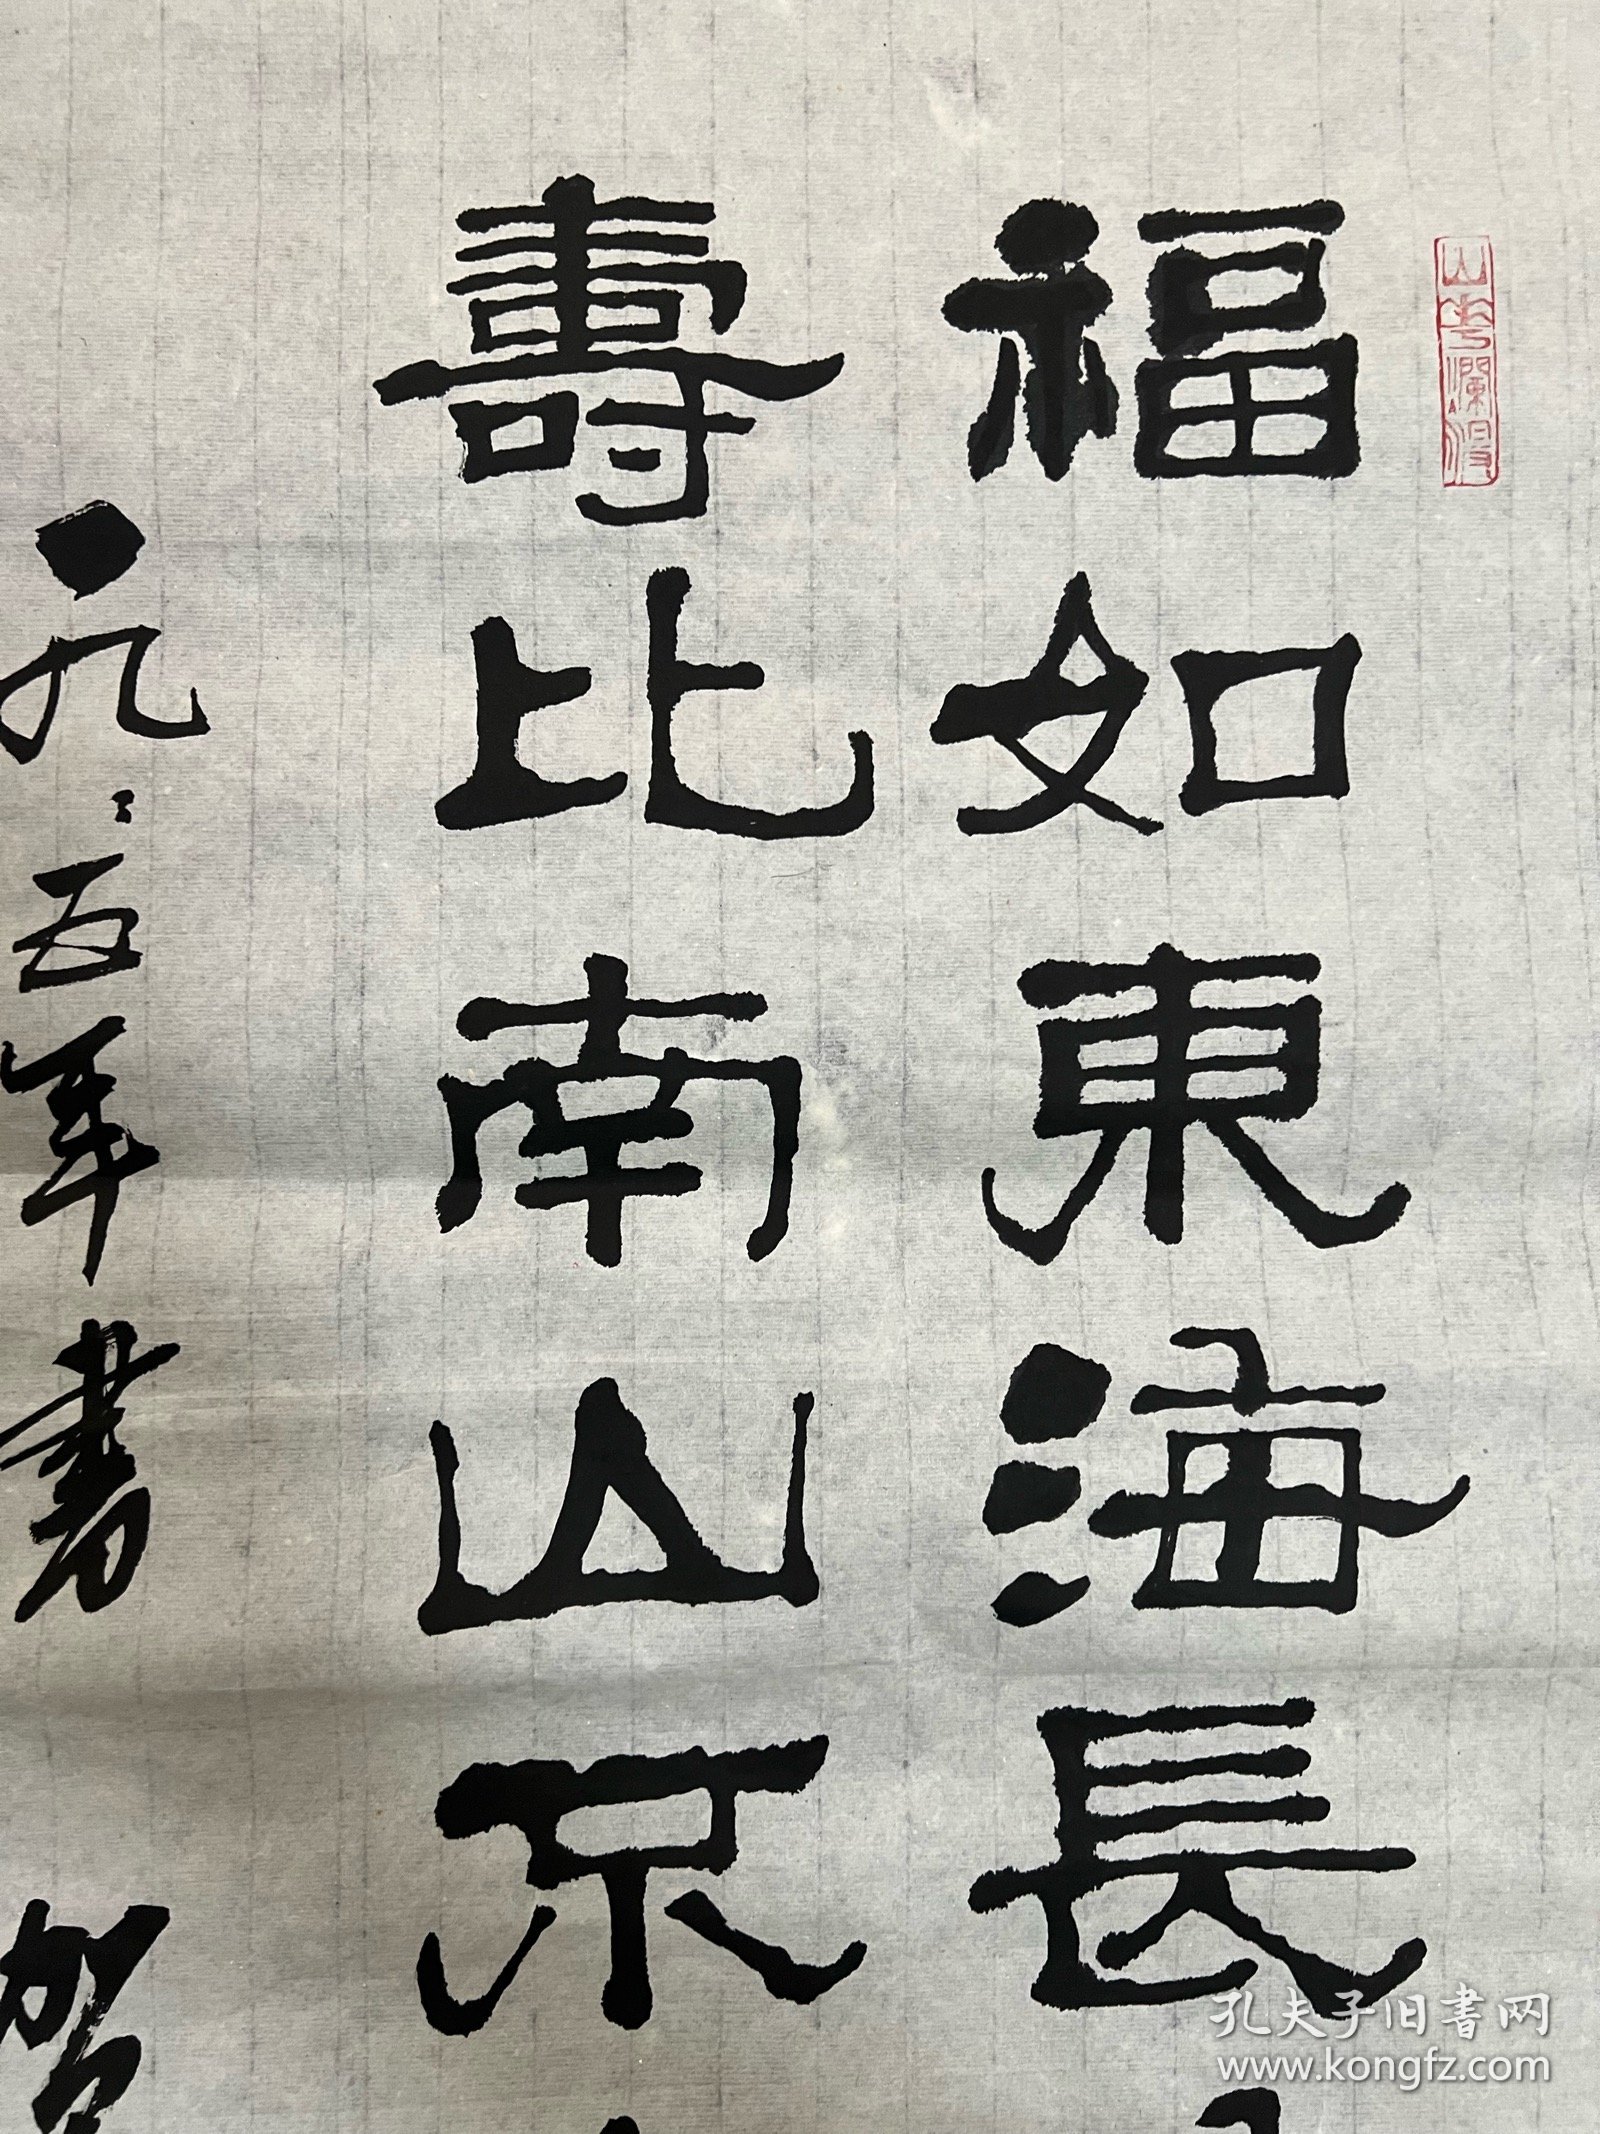 福如東海長
壽比南山不
一九九五年書 賀
孔夫子旧書网
www.kongfz.com